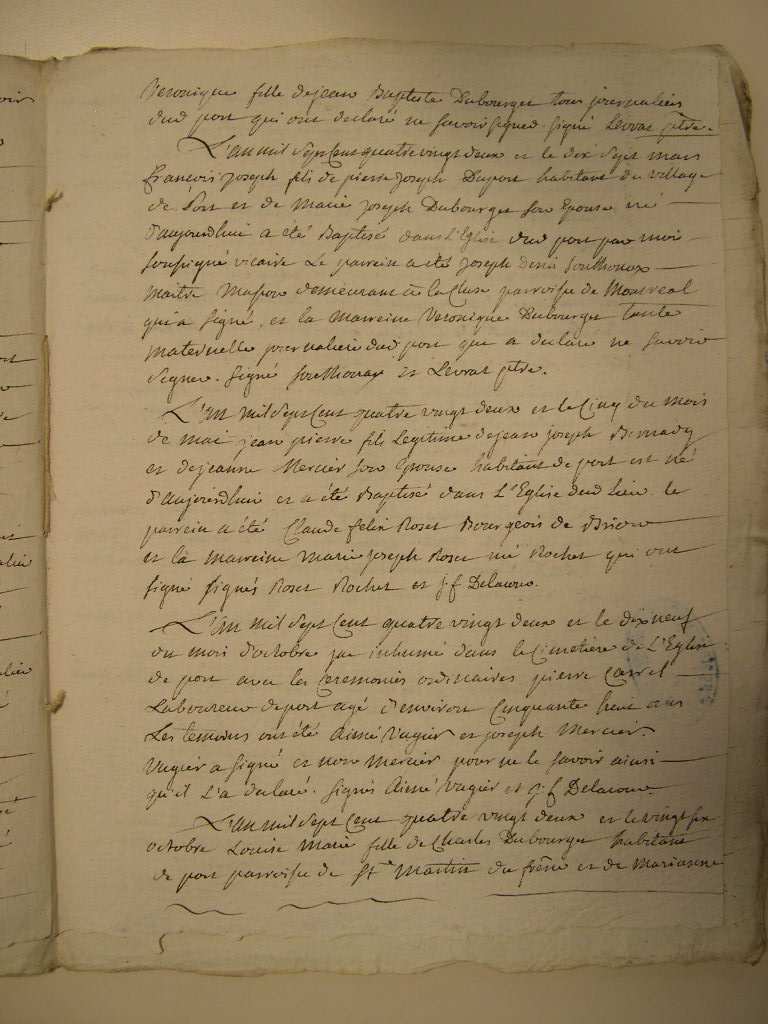 Veronique fille de jean Baptiste Dubourget tous journaliers
dud port qui ont declaré ne savoir signer. signé Levrat ptre.
L'an mil sept Cent quatre vingt deux et le dix sept mars
françois joseph fils de pierre joseph Duport habitant du village
de Port et de Marie joseph Dubourget son Epouse né
d'aujourdhui a été Baptisé dans l'Eglise dud port par moi
soussigné vicaire Le parrein a été joseph denis Southonax
maitre Masson demeurant à la Cluse parroisse de Montreal
qui a signé, et la Marreine Veronique Dubourget tante
maternelle journaliere dud port qui a declaré ne savoir
signer. signé Southonax et Levrat ptre.
L'an mil sept Cent quatre vingt deux et le Cinq du mois
de mai jean pierre fils Legitime de jean joseph
et de jeanne Mercier son Epouse habitant de port est né
d'aujourdhui et a été Baptisé dans L'Eglise dud Lieu. le
parrein a été Claude felix Roset Bourgeois de
et la marreine Marie joseph Roset né Rochet qui ont
signé signés Roset Rochet et j. f Delacour.
L'an mil sept Cent quatre vingt deux et le dix neuf
du mois d'octobre j'ai inhumé dans le Cimetiere de L'Eglise
de port avec les Ceremonies ordinaires pierre Carrel
Laboureur de port agé d'environ Cinquante huit ans
Les temoins ont été Aimé Vugier et joseph Mercier
Vugier a signé et non Mercier pour ne le savoir ainsi
qu'il L'a declaré. signés Aimé Vugier et j. f Delacour.
L'an mil sept Cent quatre vingt deux et le vingt six
octobre Louise Marie fille de Charles Dubourget habitant
de port parroisse de St Martin du frêne et de Marianne
5